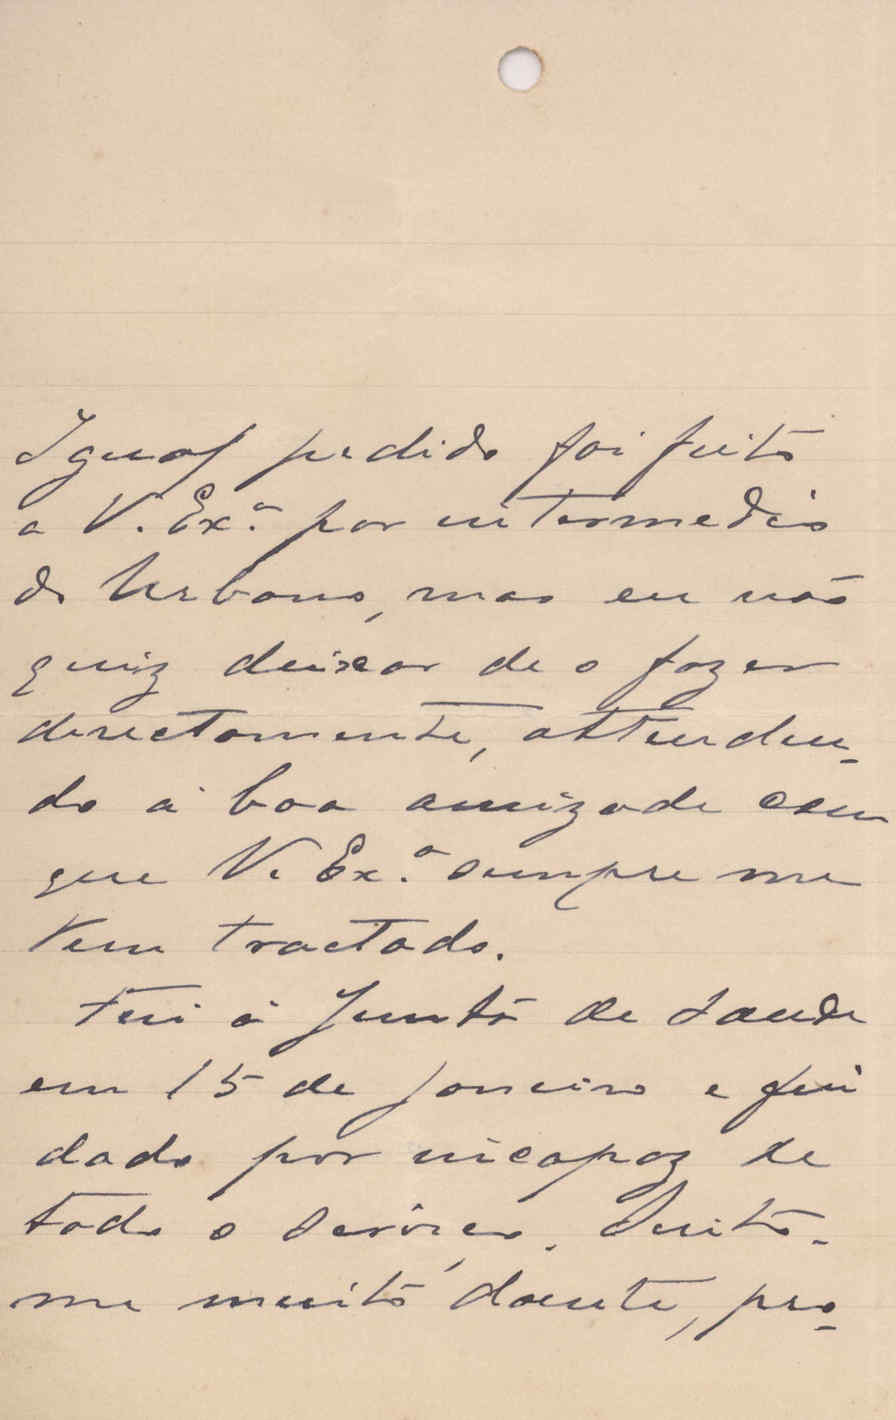 Igual pedido foi feito
a V. Ex.ª por intermedio
do Urbano, mas eu não
quiz deixar de o fazer
directamente, attenden-
do á boa amizade com
que V. Ex.ª sempre me
tem tractado.
Fui á Junta de Saude
em 15 de Janeiro e fui
dado por incapaz de
todo o serviço. Sinto-
me muito doente, pro-